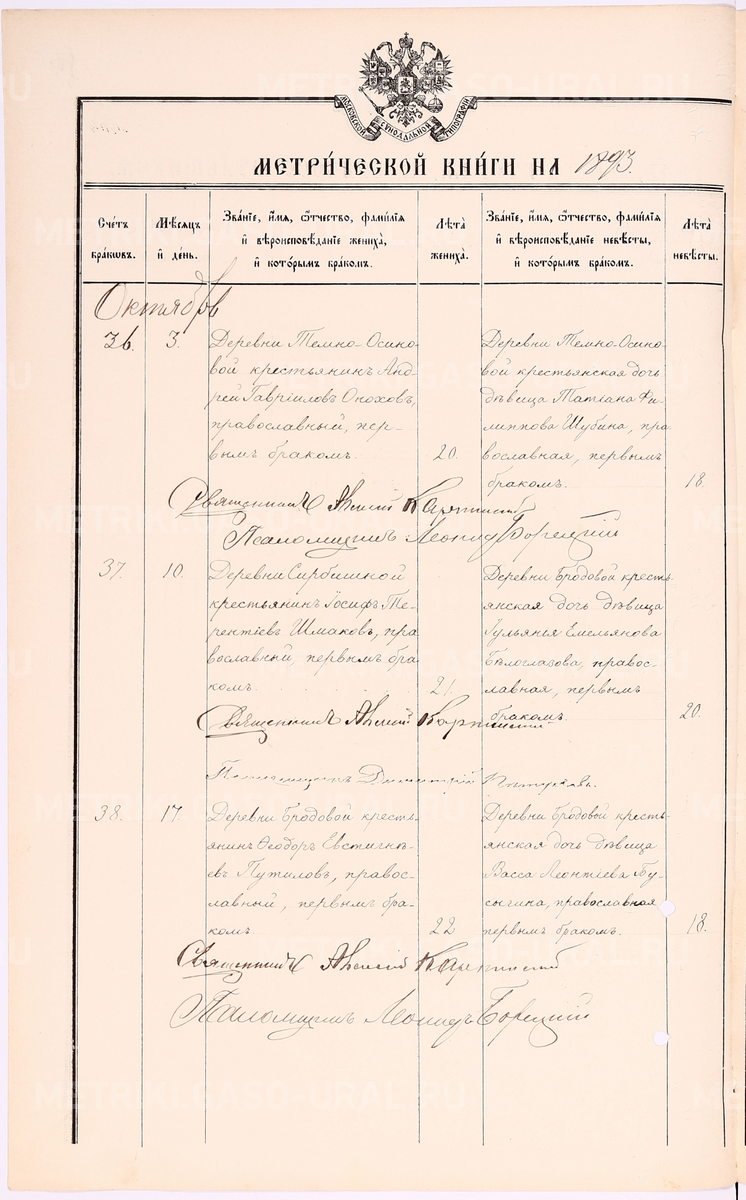 МОСКОВСКОЙ СУНОДАЛЬНОЙ ТИПОГРАФІИ
МЕТРИ́ЧЕСКОЙ КНИ́ГИ НА 1893.
Счетъ браковъ.
Мѣсяцъ и день.
Званіе, имя, отчество, фамилія и вѣроисповѣданіе жениха, и которымъ бракомъ.
Лѣта жениха.
Званіе, имя, отчество, фамилія и вѣроисповѣданіе невѣсты, и которымъ бракомъ.
Лѣта невѣсты.
Октябрь
36. 3.
Деревни Темно-Осино-
вой крестьянинъ Анд-
рей Гавріиловъ Онохов,
православный, пер-
вымъ бракомъ.
20.
Деревни Темно-Осино-
вой крестьянская дочь
дѣвица Татіана Фи-
липпова Шубина, пра
вославная, первымъ
бракомъ.
18.
Священникъ Алексій
Псаломщикъ Леонидъ Борецкій
37. 10.
Деревни
крестьянинъ Іосифъ Те-
рентіевъ Шмаковъ, пра
вославный, первымъ бра
комъ.
21.
Деревни Бродовой кресть
янская дочь дѣвица
Іульянья Емельянова
Бѣлоглазова, правос-
лавная, первымъ
бракомъ.
20.
Священникъ Алексій
Псаломщикъ Димитрій
38. 17.
Деревни Бродовой кресть-
янинъ Ѳеодоръ Евстигнѣ-
евъ Путиловъ, правос-
лавный, первымъ бра-
комъ.
22
Деревни Бродовой кресть-
янская дочь дѣвица
Васса Леонтіева Бу-
сыгина, православная
первымъ бракомъ.
18.
Священникъ Алексій
Псаломщикъ Леонидъ Борецкій
METRIKI.GASO-URAL.RU